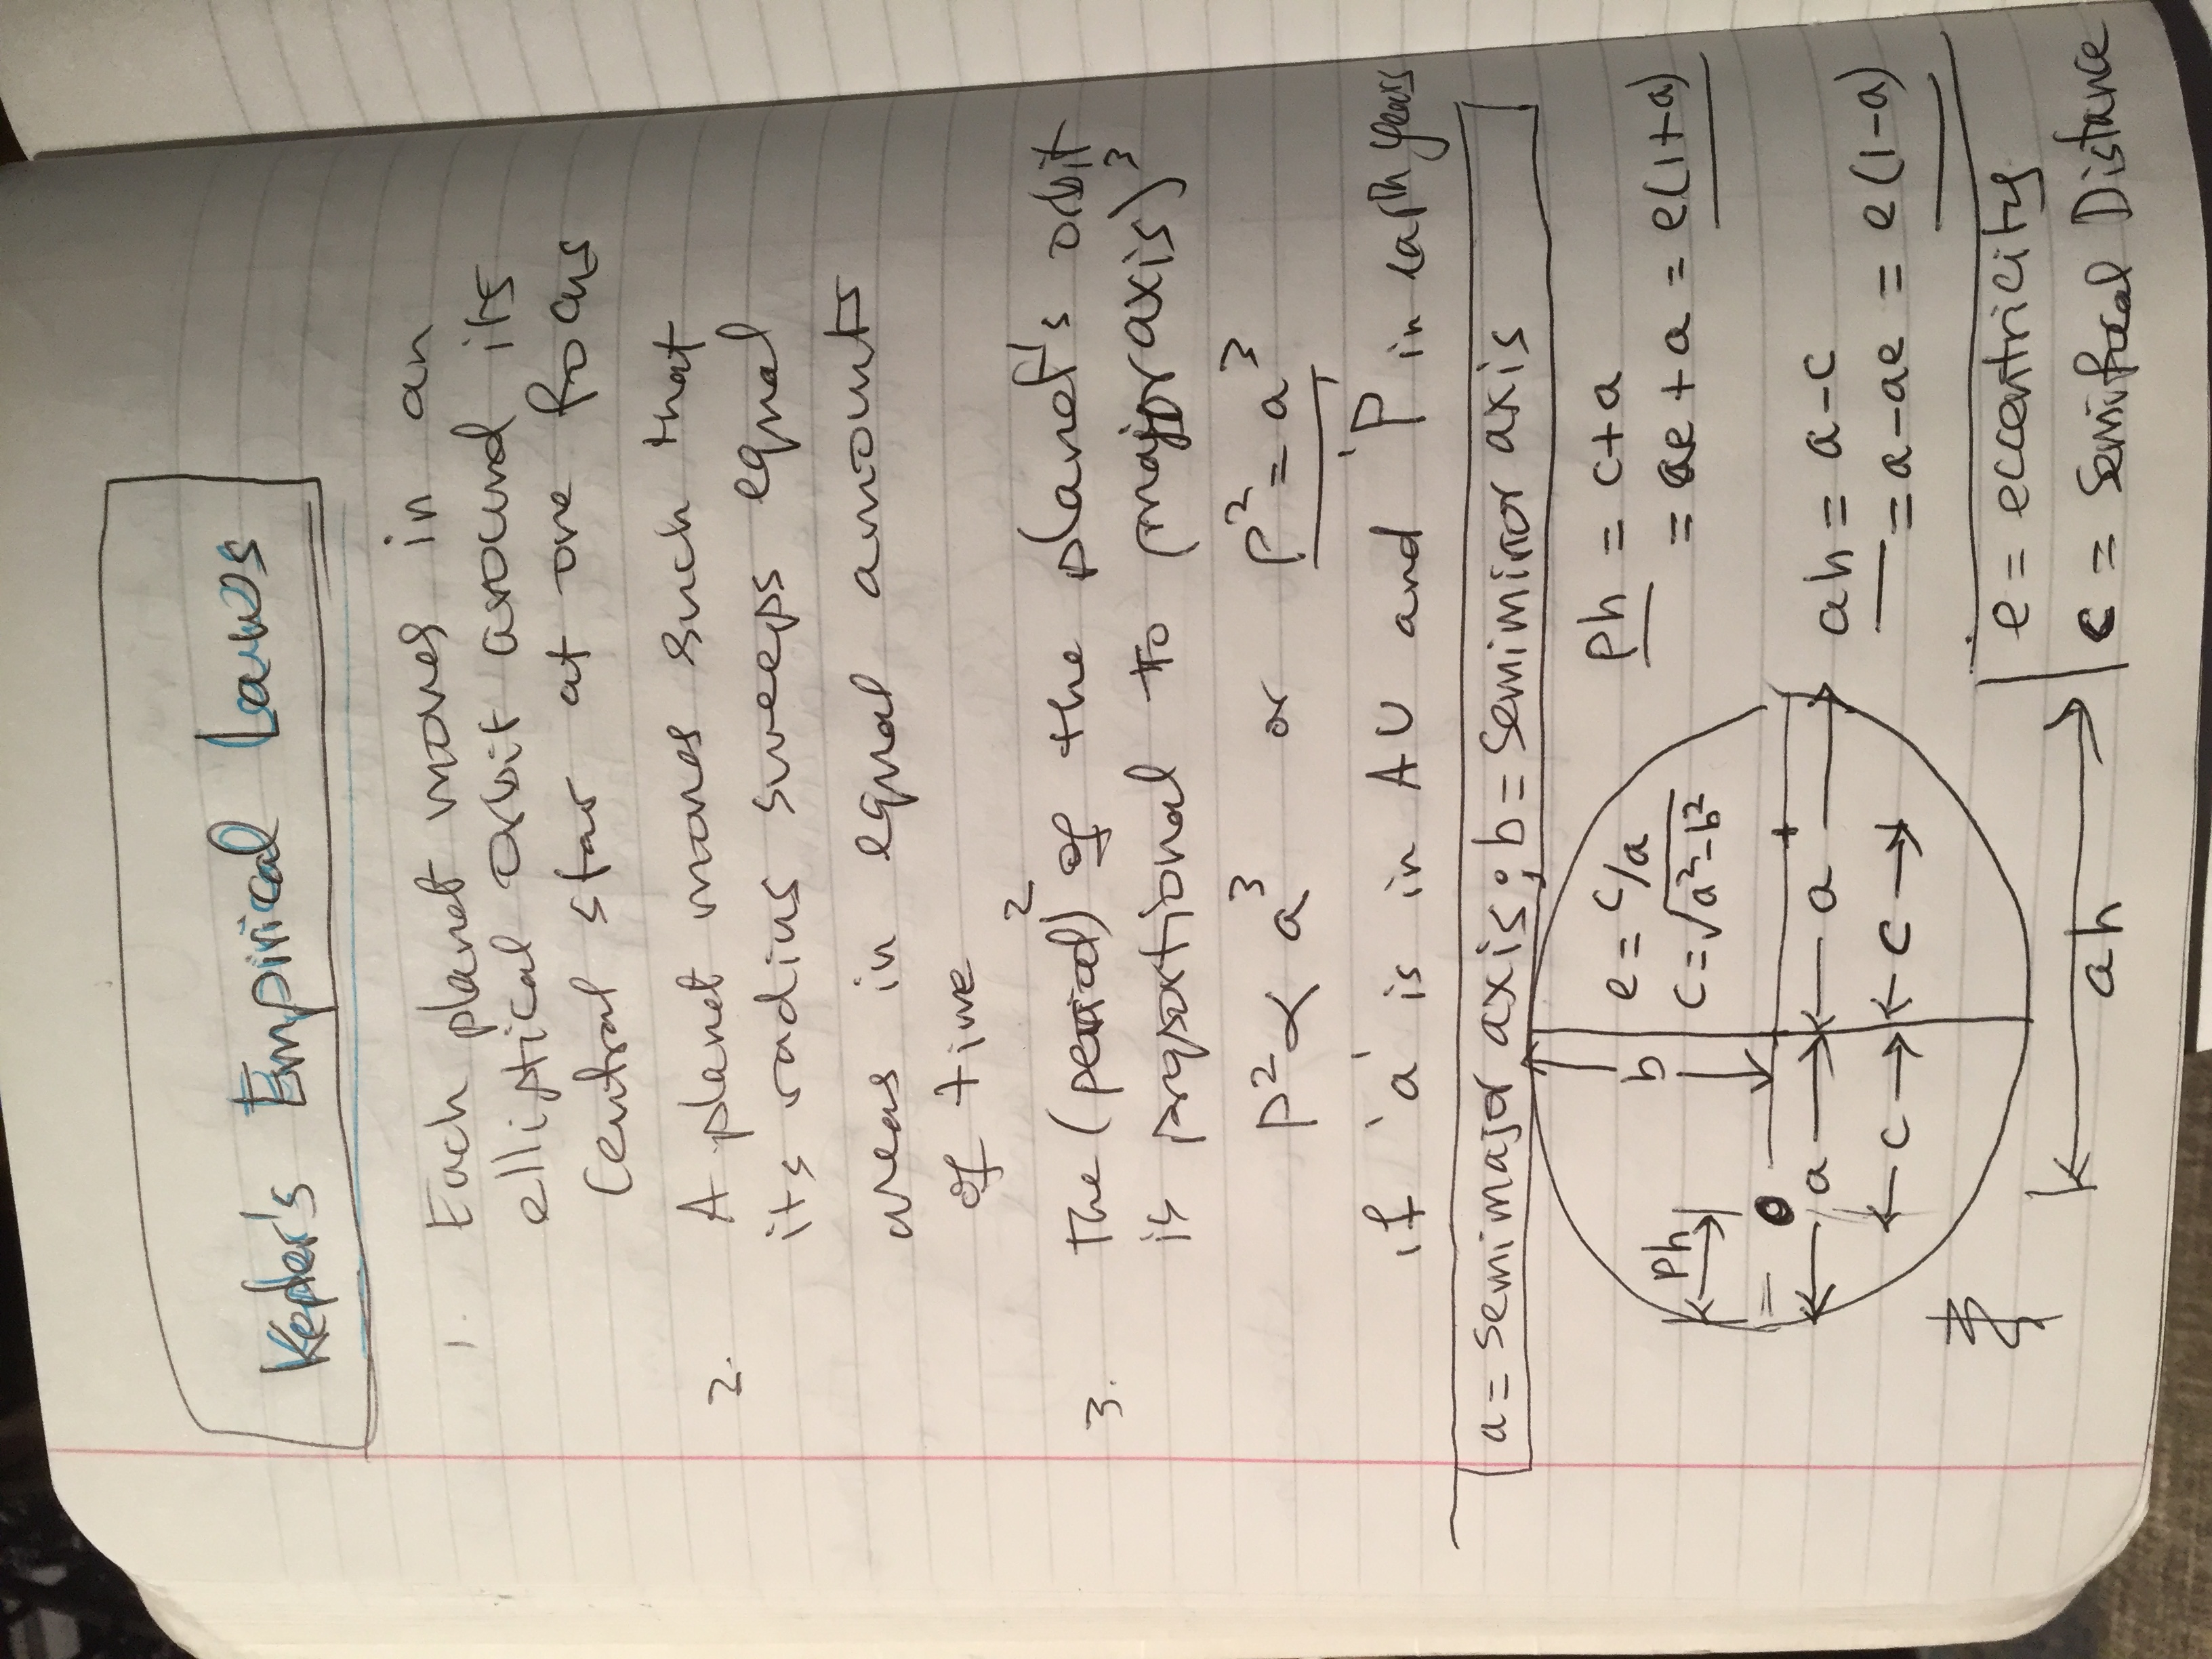 Kepler's Empirical Laws
1. Each planet moves in an
elliptical orbit around its
Central star at one focus
2. A planet moves such that
its radius sweeps equal
areas in equal amounts
of time
3. The (period)² of the planet's orbit
is proportional to (major axis)³
P² ∝ a³ or P² = a³
if 'a' is in AU and 'P' in earth years
a = semimajor axis; b = semiminor axis
e = c/a
b
c = √a²-b²
Ph
a a
c c
ah
Ph = c+a
= ae + a = e(1+a)
ah = a-c
= a-ae = e(1-a)
e = eccentricity
c = Semifocal Distance